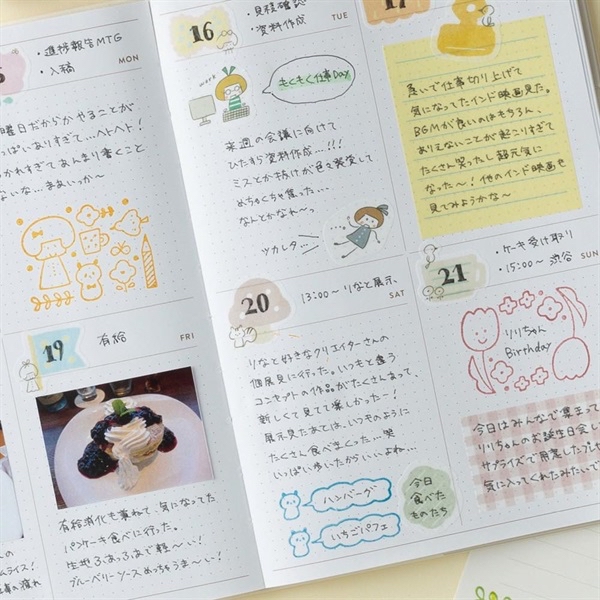 ・進捗報告MTG
・入稿
MON
曜日だからか やることが
っぱいありすぎて…ヘトヘト!
かれすぎてあんまり書くこと
ないな…まあいっか〜
16
・見積確認
・資料作成
TUE
work
もくもく仕事Day
来週の会議に向けて
ひたすら資料作成…!!!
ミスとか抜けが色々発覚して
めちゃくちゃ焦った…
なんとかなれ〜っ
ツカレタ…
17
急いで仕事切り上げて
気になってたインド映画見た。
BGMが良いのはもちろん、
ありえないことが起こりすぎて
たくさん笑ったし超元気に
なった〜!他のインド映画も
見てみようかな〜
19
有給
FRI
有給消化も兼ねて、気になってた
パンケーキ食べに行った。
生地ふあっふあで軽〜い!
ブルーベリーソースめっちゃうま〜い!
20
13:00〜 りなと展示、
SAT
りなと好きなクリエイターさんの
個展見に行った。いつもと違う
コンセプトの作品がたくさんあって、
新しくて見てて楽しかった〜!
展示見たあとは、いつものように
たくさん食べまくった…笑
いっぱい歩いたからいいよね…
ハンバーグ
いちごパフェ
今日
食べた
ものたち
21
・ケーキ受け取り
・15:00〜 渋谷
SUN
りりちゃん
Birthday
今日はみんなで集まって
りりちゃんのお誕生日会し
サプライズで用意したプレゼ
気に入ってくれたみたいで